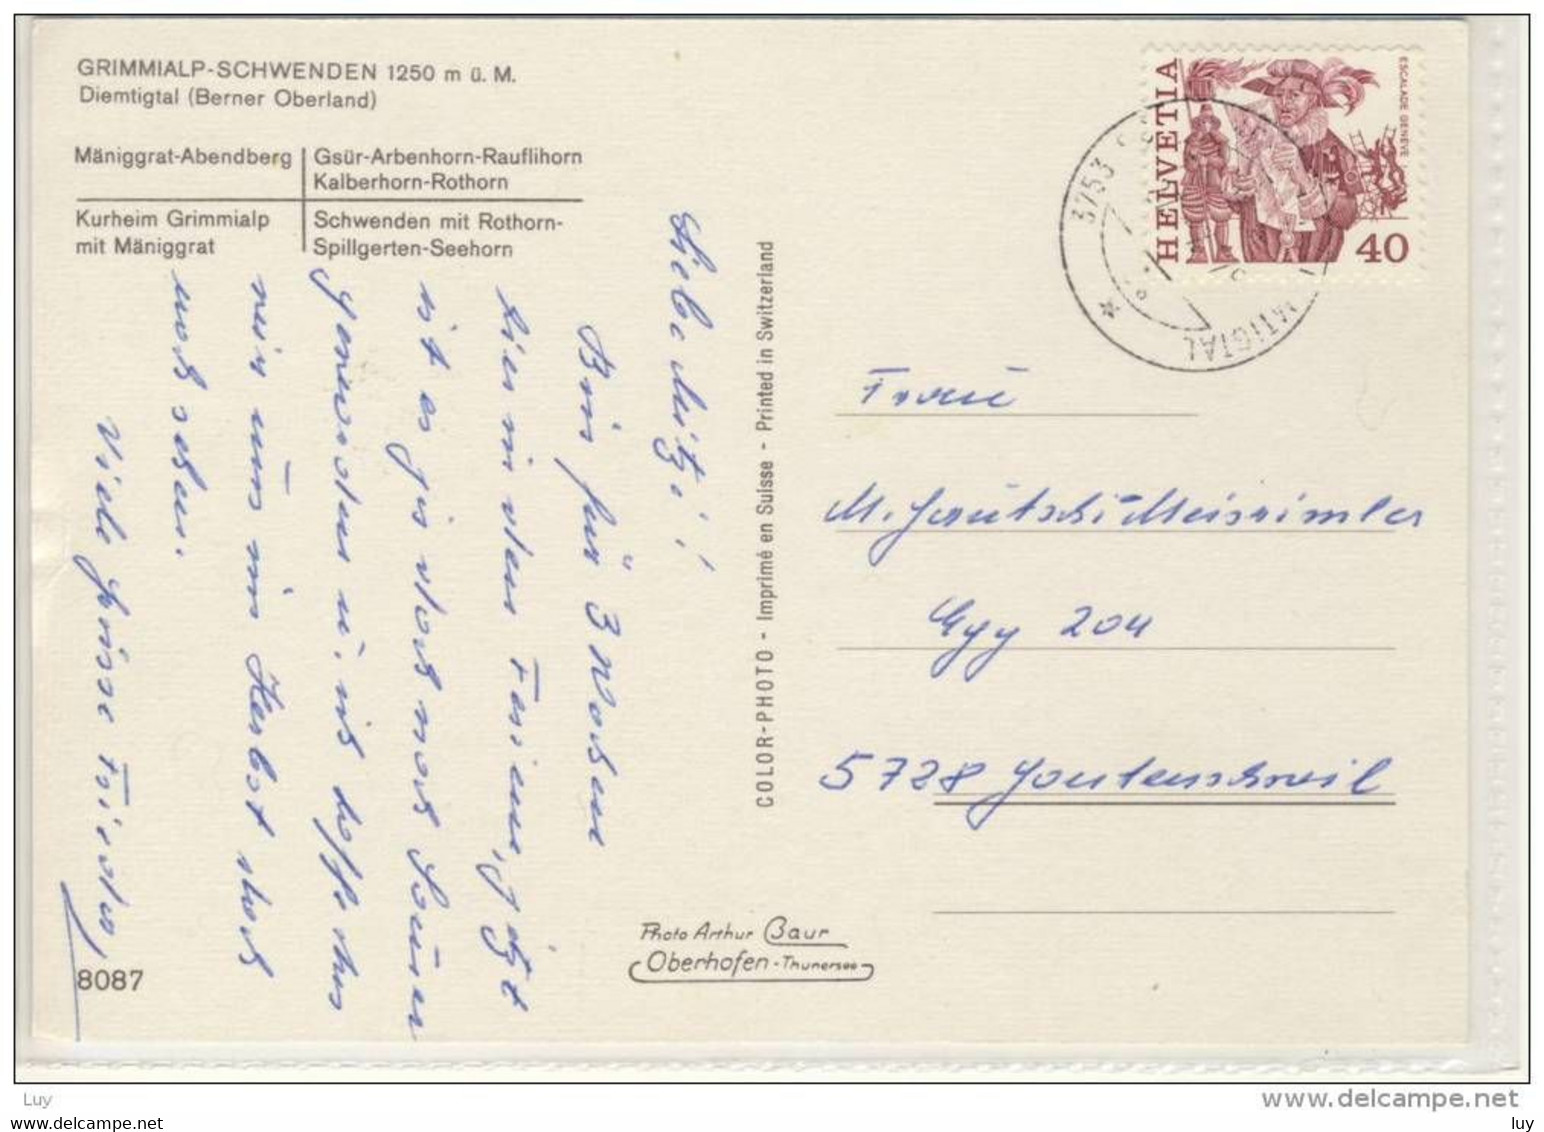 GRIMMIALP-SCHWENDEN 1250 m ü. M.
Diemtigtal (Berner Oberland)
Mäniggrat-Abendberg
Gsür-Arbenhorn-Rauflihorn
Kalberhorn-Rothorn
Kurheim Grimmialp
mit Mäniggrat
Schwenden mit Rothorn-
Spillgerten-Seehorn
Liebe Mitzi!
Bin für 3 Wochen
hier in den Ferien, jetzt
ist es jis doch noch
geworden u. ich hoffe das
wir uns im Herbst doch
noch sehen.
Viele Grüsse
8087
COLOR-PHOTO - Imprimé en Suisse - Printed in Switzerland
Photo Arthur Baur
Oberhofen-Thunersee
HELVETIA
ESCALADE GENEVE
40
3753
MTIGTAL
Frau
M.
204
5728 Gontenschwil
Luy
www.delcampe.net
www.delcampe.net
luy